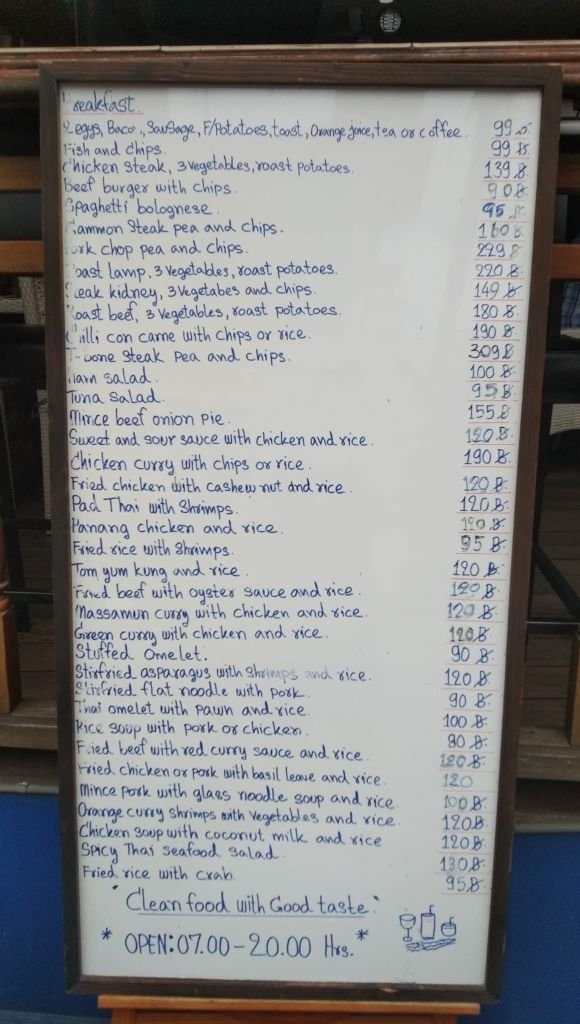 Breakfast.
2 eggs, Bacon, Sausage, F/Potatoes, toast, Orange juice, tea or coffee. 99 ฿
Fish and chips. 99 ฿.
Chicken steak, 3 vegetables, roast potatoes. 139 ฿.
Beef burger with chips. 90 ฿.
Spaghetti bolognese. 95 ฿.
Gammon Steak pea and chips. 160 ฿.
Pork chop pea and chips. 229 ฿
Roast Lamp, 3 Vegetables, roast potatoes. 220 ฿.
Steak kidney, 3 Vegetabes and chips. 149 ฿.
Roast beef, 3 Vegetables, roast potatoes. 180 ฿.
Chilli con carne with chips or rice. 190 ฿.
T-bone Steak Pea and chips. 309 ฿
Ham salad. 100 ฿.
Tuna Salad. 95 ฿.
Mince beef onion Pie. 155 ฿
Sweet and sour sauce with chicken and rice. 120 ฿.
Chicken curry with chips or rice. 190 ฿.
Fried chicken with cashew nut and rice. 120 ฿.
Pad Thai with Shrimps. 120 ฿.
Panang chicken and rice. 120 ฿.
Fried rice with Shrimps. 95 ฿.
Tom yum kung and rice. 120 ฿.
Fried beef with oyster sauce and rice. 120 ฿.
Massamun curry with chicken and rice. 120 ฿.
Green curry with chicken and rice. 120 ฿.
Stuffed omelet. 90 ฿.
Stirfried asparagus with Shrimps and rice. 120 ฿.
Stirfried flat noodle with pork. 90 ฿.
Thai omelet with pawn and rice. 100 ฿.
Rice Soup with pork or chicken. 90 ฿.
Fried beef with red curry sauce and rice. 120 ฿.
Fried chicken or pork with basil leave and rice. 120
Mince Pork with glass noodle soup and rice. 100 ฿.
Orange curry shrimps with vegetables and rice. 120 ฿.
Chicken Soup with coconut milk and rice 120 ฿.
Spicy Thai seafood salad. 130 ฿.
Fried rice with crab. 95 ฿.
"Clean food with Good taste."
* OPEN: 07.00 - 20.00 Hrs. *